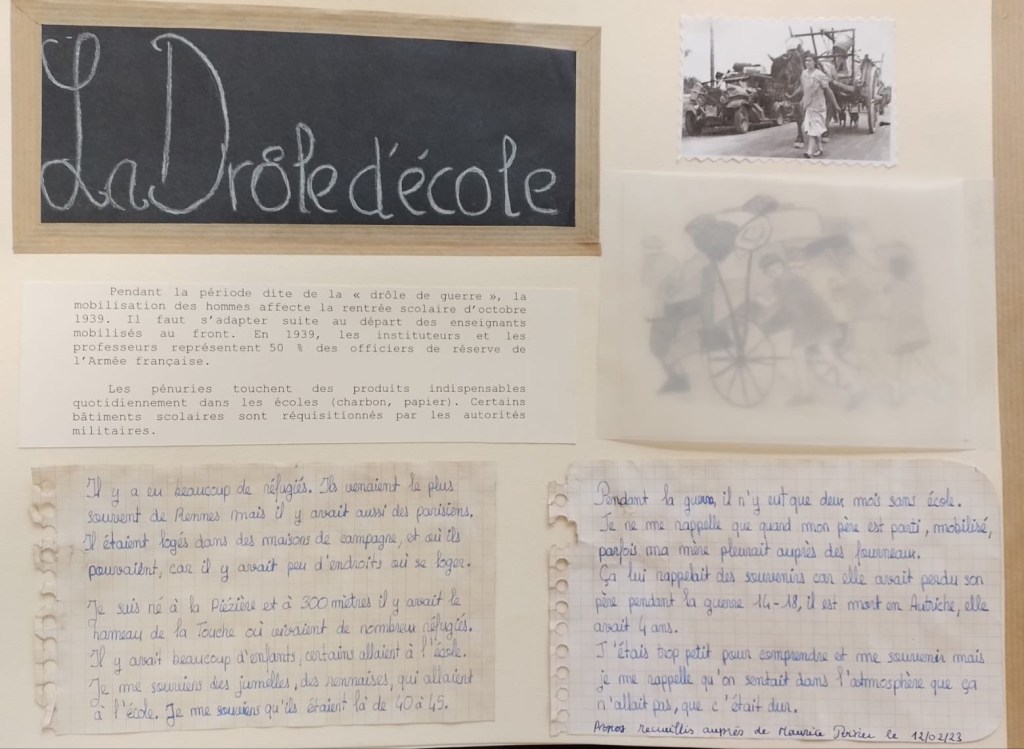 La Drôle d'école
Pendant la période dite de la « drôle de guerre », la
mobilisation des hommes affecte la rentrée scolaire d'octobre
1939. Il faut s'adapter suite au départ des enseignants
mobilisés au front. En 1939, les instituteurs et les
professeurs représentent 50 % des officiers de réserve de
l'Armée française.
Les pénuries touchent des produits indispensables
quotidiennement dans les écoles (charbon, papier). Certains
bâtiments scolaires sont réquisitionnés par les autorités
militaires.
Il y a eu beaucoup de réfugiés. Ils venaient le plus
souvent de Rennes mais il y avait aussi des parisiens.
Il étaient logés dans des maisons de campagne, et où ils
pouvaient, car il y avait peu d'endroits où se loger.
Je suis né à la Piézière et à 300 mètres il y avait le
hameau de la Touche où vivaient de nombreux réfugiés.
Il y avait beaucoup d'enfants, certains allaient à l'école.
Je me souviens des jumelles, des rennaises, qui allaient
à l'école. Je me souviens qu'ils étaient là de 40 à 45.
Pendant la guerre, il n'y eut que deux mois sans école.
Je ne me rappelle que quand mon père est parti, mobilisé,
parfois ma mère pleurait auprès des fourneaux.
Ça lui rappelait des souvenirs car elle avait perdu son
père pendant la guerre 14-18, il est mort en Autriche, elle
avait 4 ans.
J'étais trop petit pour comprendre et me souvenir mais
je me rappelle qu'on sentait dans l'atmosphère que ça
n'allait pas, que c'était dur.
Propos recueillis auprès de Maurice le 12/02/23